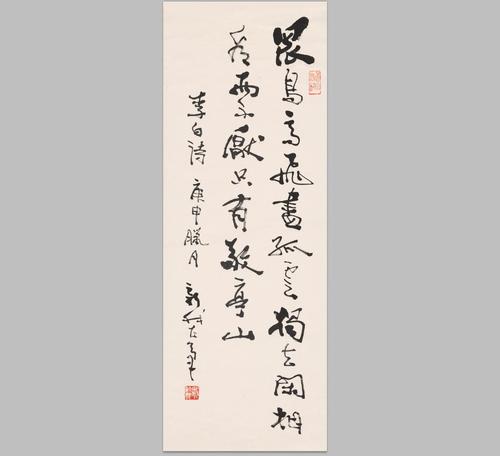 眾鳥高飛盡孤雲獨去閑相
看兩不厭只有敬亭山
李白詩 庚申臘月 新我左筆